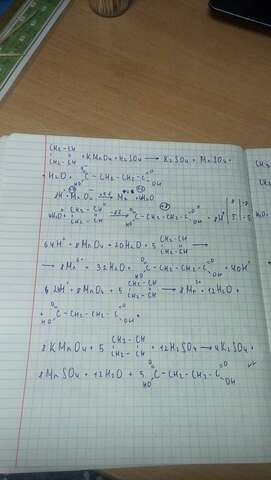 CH₂-CH
| || + KMnO₄ + H₂SO₄ → K₂SO₄ + MnSO₄ +
CH₂-CH
+ H₂O + O HO C - CH₂ - CH₂ - C O OH
8H⁺ MnO₄⁻ +5e → Mn²⁺ 4H₂O
4H₂O + CH₂-CH CH₂-CH -8e → O HO C-CH₂-CH₂-C O OH + 8H⁺
64H⁺ + 8MnO₄⁻ + 20H₂O + 5 CH₂-CH CH₂-CH →
→ 8Mn²⁺ + 32H₂O + O HO C-CH₂-CH₂-C O OH + 40H⁺
24H⁺ + 8MnO₄⁻ + 5 CH₂-CH CH₂-CH → 8Mn²⁺ + 12H₂O +
+ O HO C-CH₂-CH₂-C O OH
8KMnO₄ + 5 CH₂-CH CH₂-CH + 12H₂SO₄ → 4K₂SO₄ +
8MnSO₄ + 12H₂O + 5 O HO C-CH₂-CH₂-C O OH